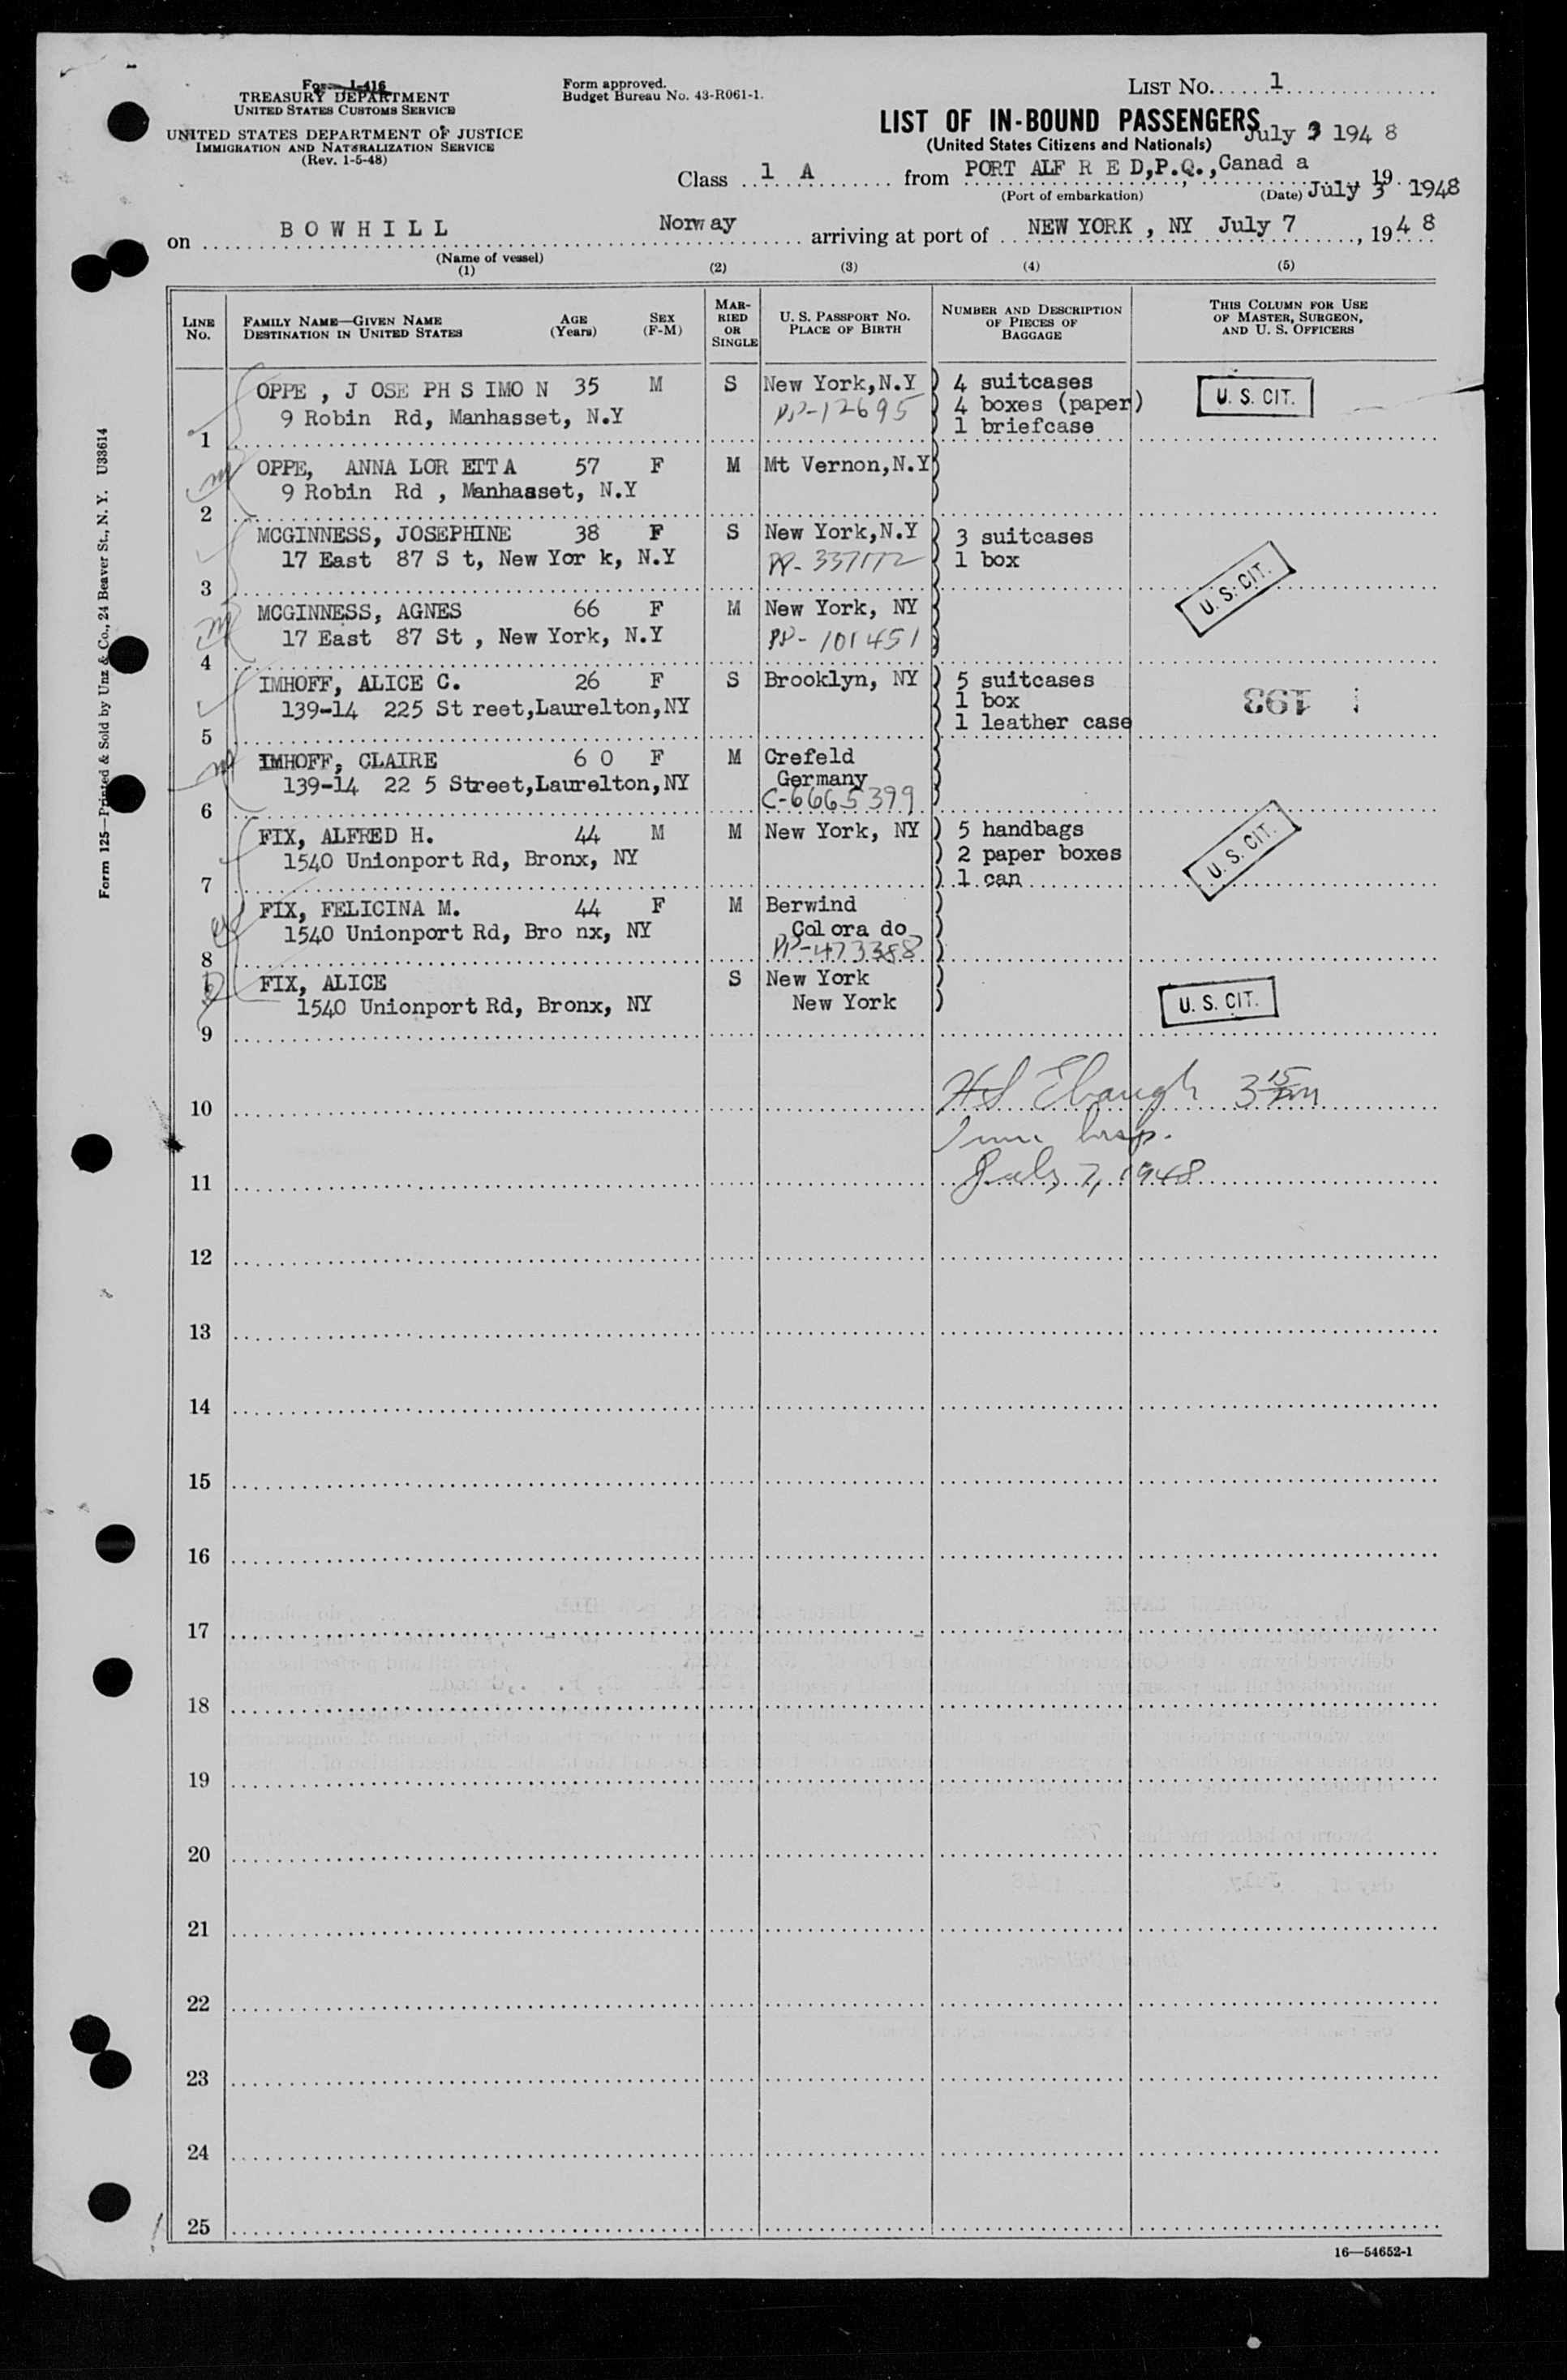 Form I-416
TREASURY DEPARTMENT
UNITED STATES CUSTOMS SERVICE
UNITED STATES DEPARTMENT OF JUSTICE
IMMIGRATION AND NATURALIZATION SERVICE
(Rev. 1-5-48)
Form approved.
Budget Bureau No. 43-R061-1.
LIST NO. 1
LIST OF IN-BOUND PASSENGERS
(United States Citizens and Nationals) July 3 194 8
Class 1 A from PORT ALF R E D,P.Q.,Canad a 19
(Port of embarkation) (Date) July 3 1948
on B O W H I L L Norw ay arriving at port of NEW YORK , NY July 7, 194 8
(Name of vessel)
(1) (2) (3) (4) (5)
LINE No.
FAMILY NAME—GIVEN NAME
DESTINATION IN UNITED STATES
AGE (Years)
SEX (F-M)
MARRIED OR SINGLE
U. S. PASSPORT NO.
PLACE OF BIRTH
NUMBER AND DESCRIPTION OF PIECES OF BAGGAGE
THIS COLUMN FOR USE OF MASTER, SURGEON, AND U. S. OFFICERS
OPPE , J OSE PH S IMO N 35 M S New York,N.Y ) 4 suitcases U. S. CIT.
9 Robin Rd, Manhasset, N.Y PP-12695 ) 4 boxes (paper)
1 ) 1 briefcase
OPPE, ANNA LOR ETT A 57 F M Mt Vernon,N.Y)
9 Robin Rd , Manhasset, N.Y )
2
MCGINNESS, JOSEPHINE 38 F S New York,N.Y ) 3 suitcases
17 East 87 S t, New Yor k, N.Y PP-337172 ) 1 box U. S. CIT.
3
MCGINNESS, AGNES 66 F M New York, NY )
17 East 87 St , New York, N.Y PP-101451 )
4
IMHOFF, ALICE C. 26 F S Brooklyn, NY ) 5 suitcases
139-14 225 St reet,Laurelton,NY ) 1 box 193
5 ) 1 leather case
IMHOFF, CLAIRE 6 0 F M Crefeld )
139-14 22 5 Street,Laurelton,NY Germany )
6 C-6665399 )
FIX, ALFRED H. 44 M M New York, NY ) 5 handbags U. S. CIT.
1540 Unionport Rd, Bronx, NY ) 2 paper boxes
7 ) 1 can
FIX, FELICINA M. 44 F M Berwind )
1540 Unionport Rd, Bro nx, NY Col ora do )
8 PP-473388 )
FIX, ALICE S New York )
1540 Unionport Rd, Bronx, NY New York ) U. S. CIT.
9
10 HS Ebaugh 3 15 pm
Imm. Insp.
11 July 7, 1948
12
13
14
15
16
17
18
19
20
21
22
23
24
25
16—54652-1
Form 125—Printed & Sold by Unz & Co., 24 Beaver St., N. Y. U38614